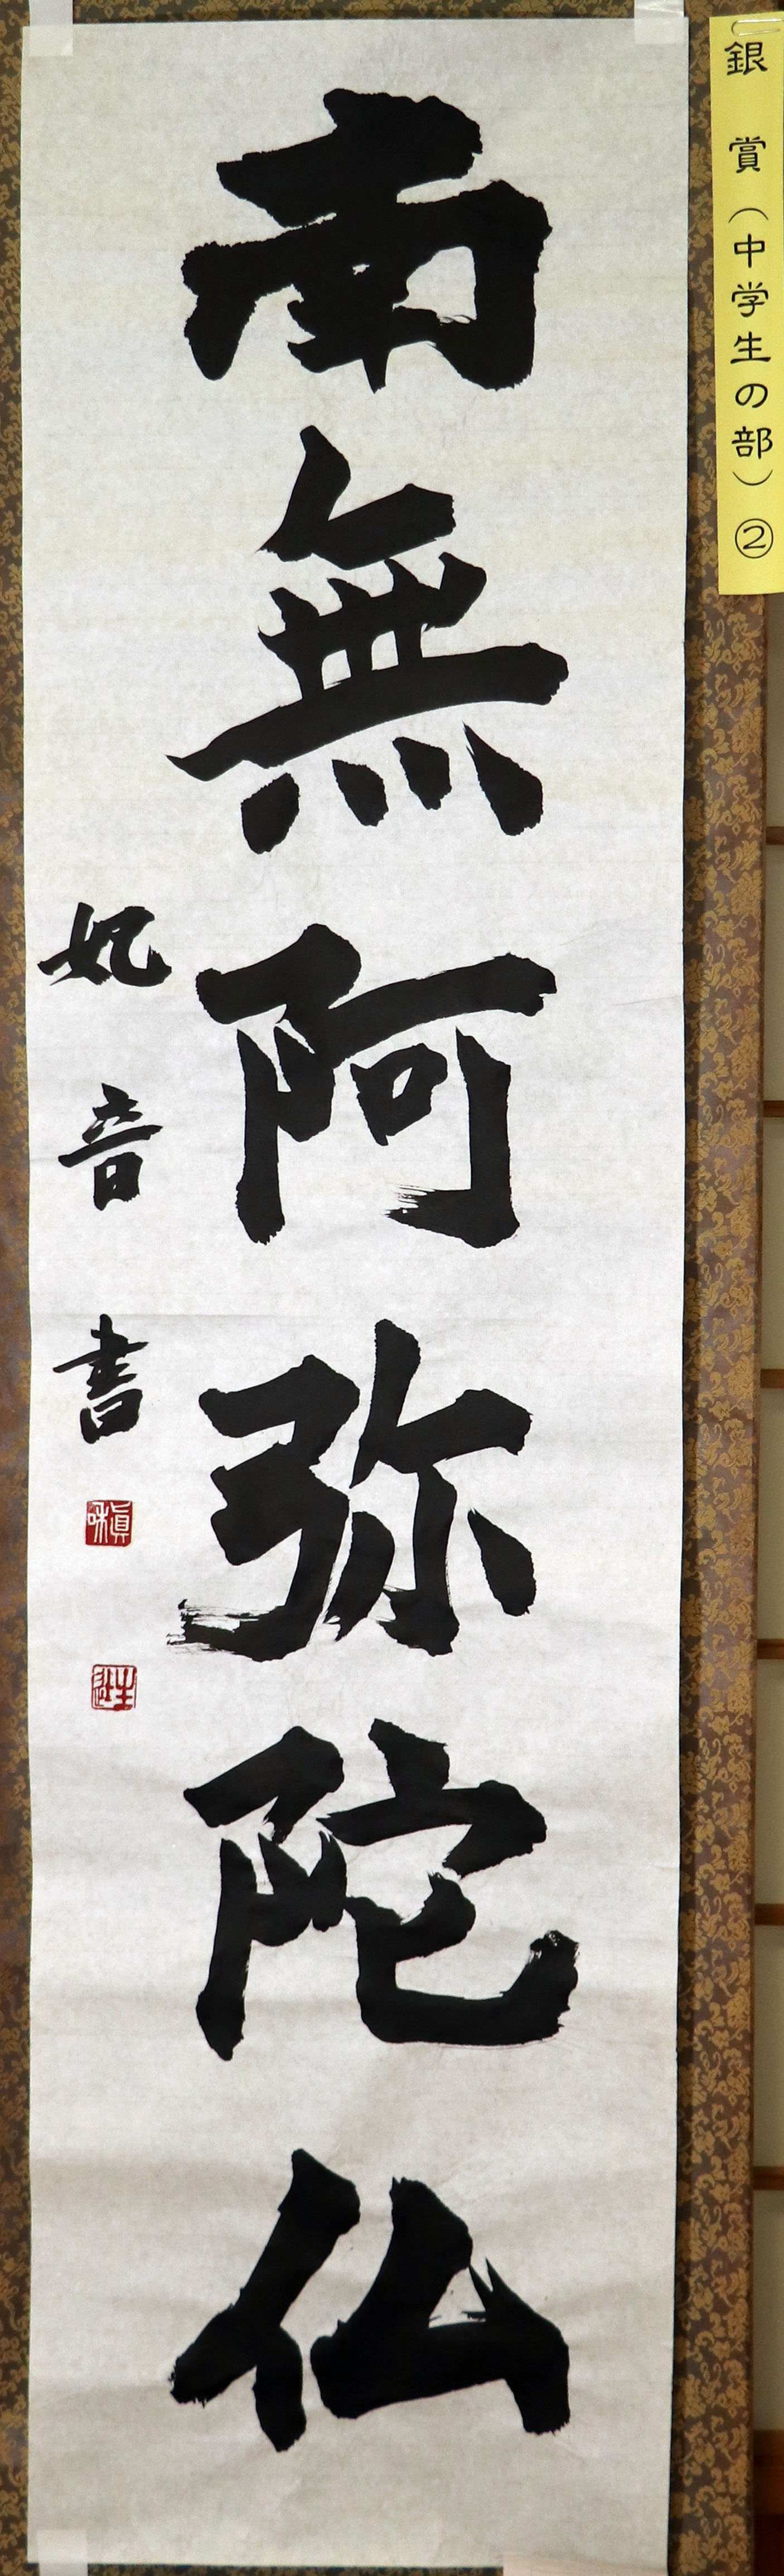 銀賞(中学生の部)②
南無阿弥陀仏
妃音書